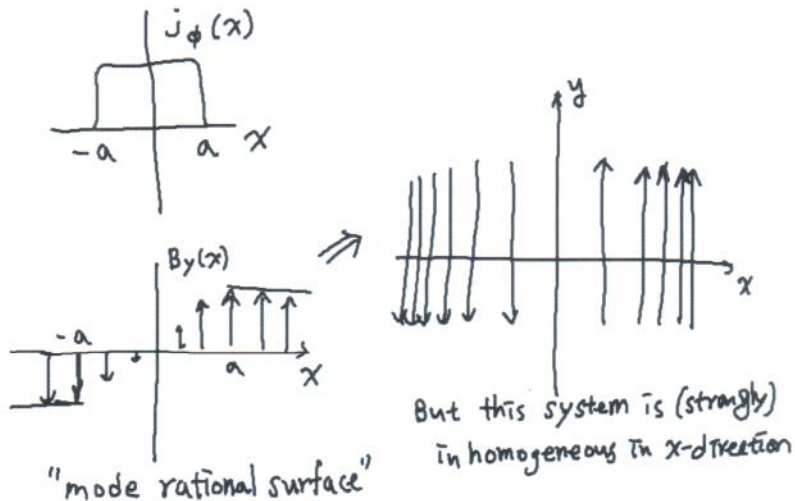 j_ϕ(x)
-a a x
By(x)
-a
a x
"mode rational surface"
y
x
But this system is (strongly)
in homogeneous in x-direction